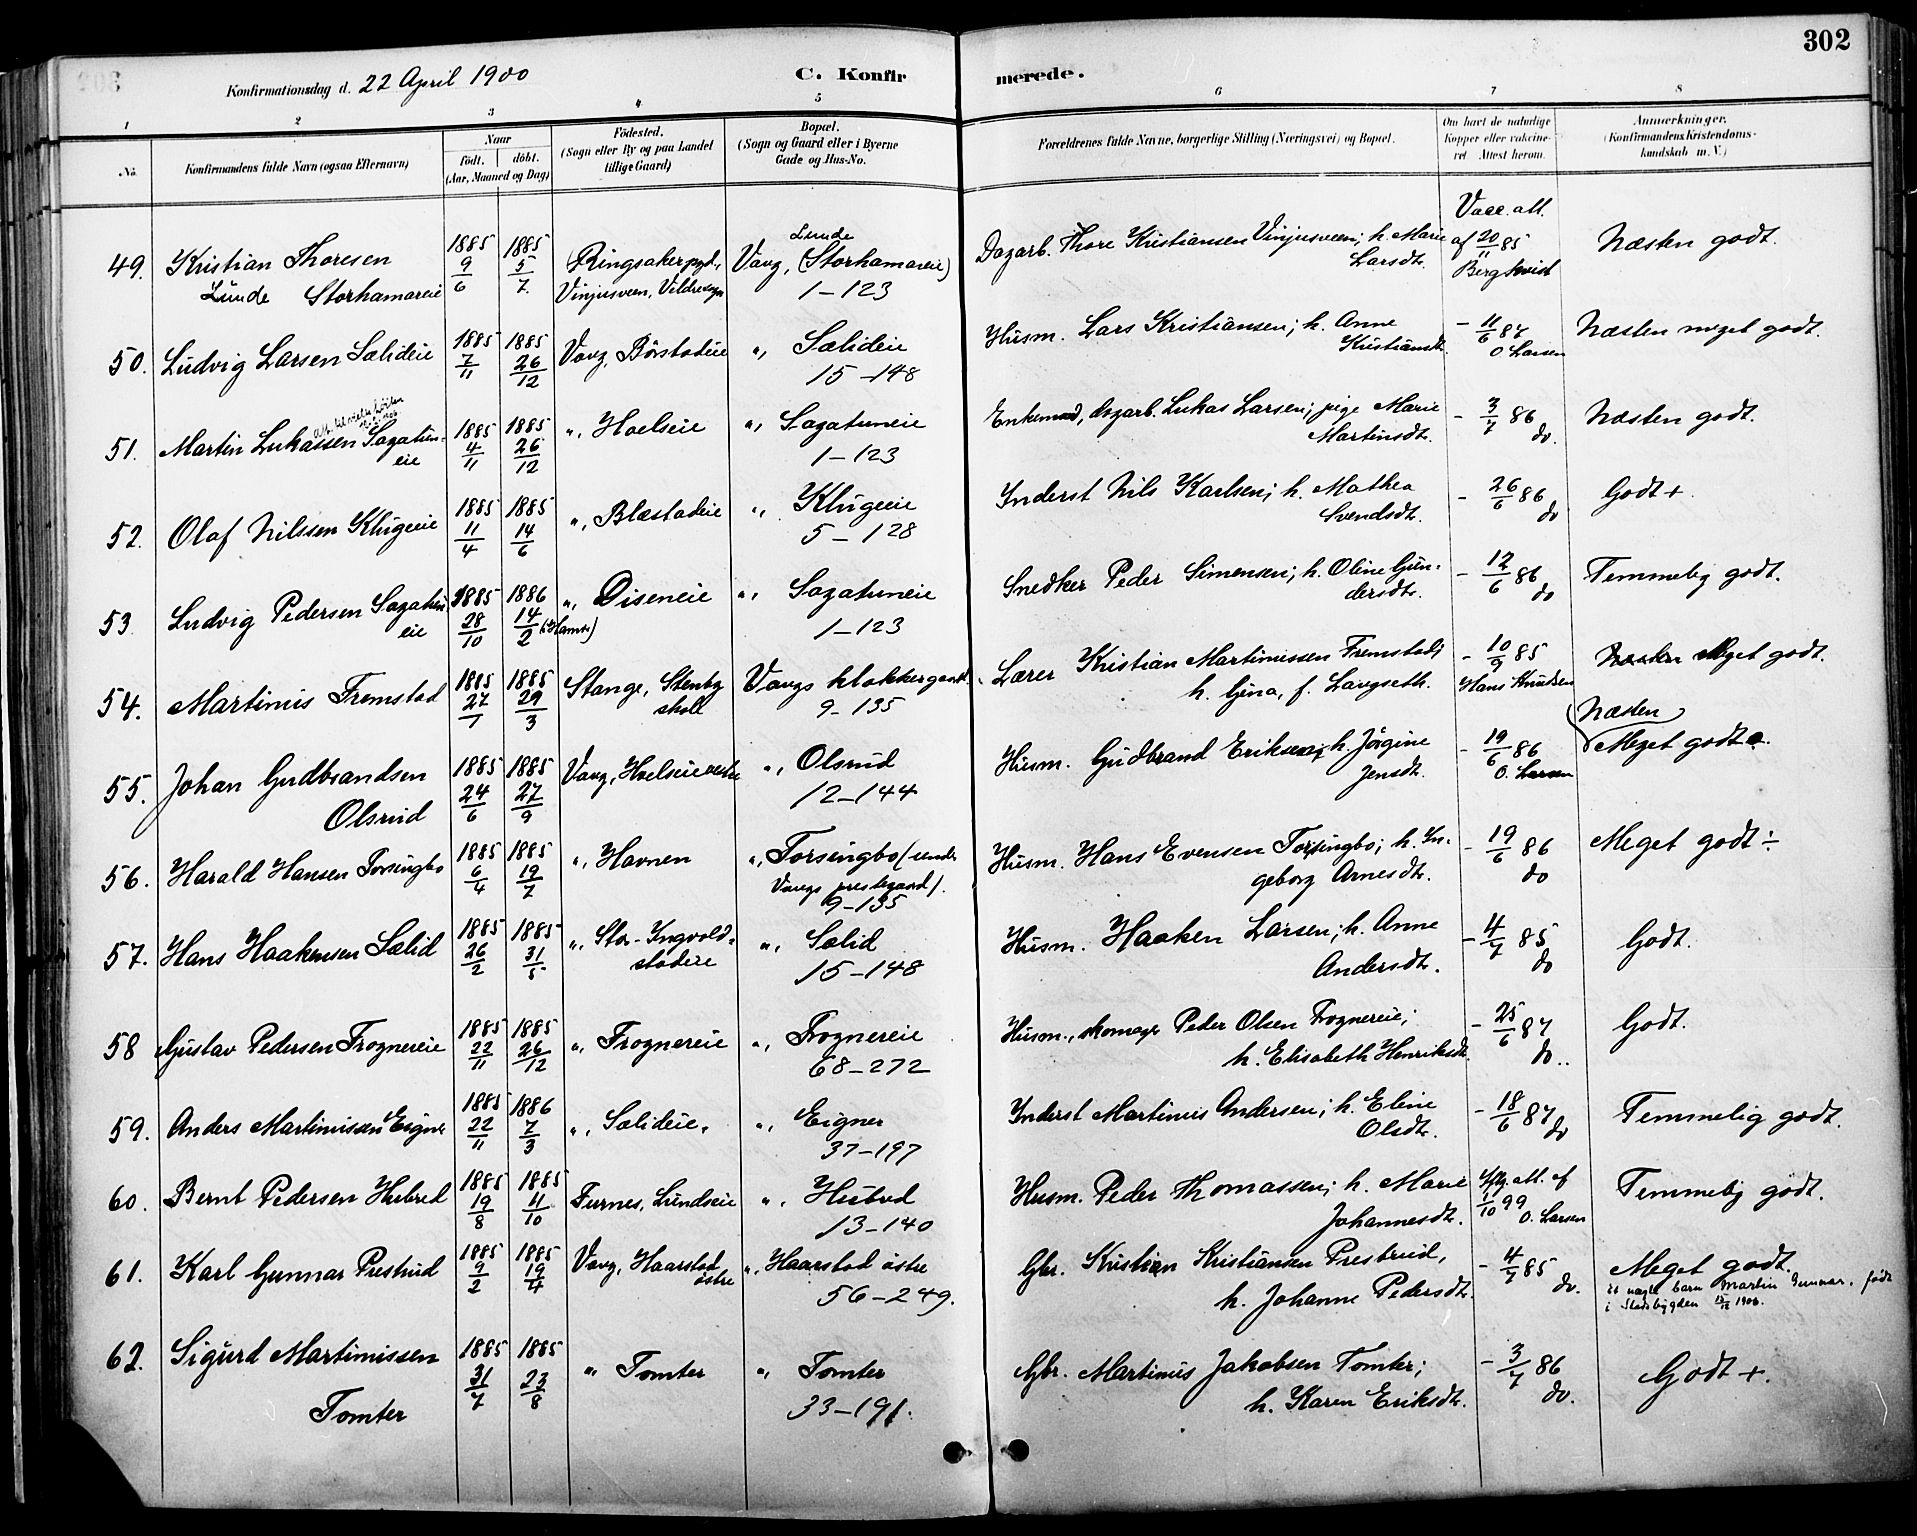 302
Konfirmationsdag d. 22 April 1900
C. Konfirmerede.
1 2 3 4 5 6 7 8
No. Konfirmandens fulde Navn (ogsaa Efternavn) Naar født. døbt. (Aar, Maaned og Dag) Fødested. (Sogn eller By og paa Landet tillige Gaard) Bopæl. (Sogn og Gaard eller i Byerne Gade og Hus-No. Forældrenes fulde Navne, borgerlige Stilling (Næringsvei) og Bopæl. Om havt de naturlige Kopper eller vaccineret Attest herom. Anmærkninger. (Konfirmandens Kristendomskundskab m. V.)
49. Kristian Thoresen 1885 9/6 1885 5/7 Ringsaker pgd., Vang, Lunde (Storhamareie) Dagarb. Thore Kristiansen Vinjusveen; h. Marie Larsdtr. Vacc. att. af 20/11 85 Bergkvist Næsten godt.
Lunde Storhamareie Vinjusveen, Veldresogn 1-123
50. Ludvig Larsen Sælideie 1885 7/11 1885 26/12 Vang, Børstadeie " Sælideie Husm. Lars Kristiansen; h. Anne Kristiansdtr. - 11/6 87 O. Larsen Næsten meget godt.
15-148
51. Martin Lukassen Sagatuneie 1885 4/11 1885 26/12 " Hoelseie " Sagatuneie Enkemand, dagarb. Lukas Larsen; pige Marie Martinsdtr. - 3/7 86 do. Næsten godt.
1-123
52. Olaf Nilssen Klugeeie 1885 11/4 1885 14/6 " Blæstadeie " Klugeeie Inderst Nils Karlsen; h. Mathea Svendsdtr. - 26/6 86 do Godt +
5-128
53. Ludvig Pedersen Sagatuneie 1885 28/10 1886 14/2 (Hamar) " Diseneie " Sagatuneie Snedker Peder Simensen; h. Oline Gundersdtr. - 12/6 86 do Temmelig godt.
1-123
54. Martinus Fremstad 1885 27/1 1885 29/3 Stange, Stenby skole Vangs klokkergaard. Lærer Kristian Martinussen Fremstad; h. Gina, f. Langseth. - 10/9 85 Hans Knudsen Næsten Meget godt.
9-135
55. Johan Gudbrandsen Olsrud 1885 24/6 1885 27/9 Vang, Hoelseie vestre " Olsrud Husm. Gudbrand Eriksen; h. Jørgine Jensdtr. - 19/6 86 O. Larsen (Næsten) Meget godt.
12-144
56. Harald Hansen Torsingbo 1885 6/4 1885 19/7 " Havnen " Torsingbo (under Vangs prestegaard). Husm. Hans Evensen Torsingbo; h. Ingeborg Arnesdtr. - 19/6 86 do Meget godt ÷
9-135
57. Hans Haakensen Sælid 1885 26/2 1885 31/5 " Stor-Ingvoldstadeie " Sælid Husm. Haaken Larsen; h. Anne Andersdtr. - 4/7 85 do Godt.
15-148
58 Gustav Pedersen Frognereie 1885 22/11 1885 26/12 " Frognereie " Frognereie Husm., skomager Peder Olsen Frognereie; h. Elisabeth Henriksdtr. - 25/6 87 do.. Godt.
68-272
59. Anders Martinussen Eigner 1885 22/11 1886 7/3 " Sælideie. " Eigner Inderst Martinus Andersen; h. Eline Olsdtr. - 18/6 87 do Temmelig godt.
37-197
60. Bernt Pedersen Husbred 1885 19/8 1885 11/10 Furnes, Lundseie " Husbred Husm. Peder Thomassen; h. Marie Johannesdtr. att. af 1/10 99 O. Larsen Temmelig godt.
13-140
61. Karl Gunnar Prestrud 1885 9/2 1885 19/4 Vang, Haarstad østre " Haarstad østre Gbr. Kristian Kristiansen Prestrud, h. Johanne Pedersdtr. - 4/7 85 do. Meget godt.
56-249. barn Martin Gunnar, født i Stadsbygden 1900.
62. Sigurd Martinussen Tomter 1885 31/7 1885 23/8 " Tomter " Tomter Gbr. Martinus Jakobsen Tomter; h. Karen Eriksdtr. - 3/7 86 do. Godt +.
33-191.